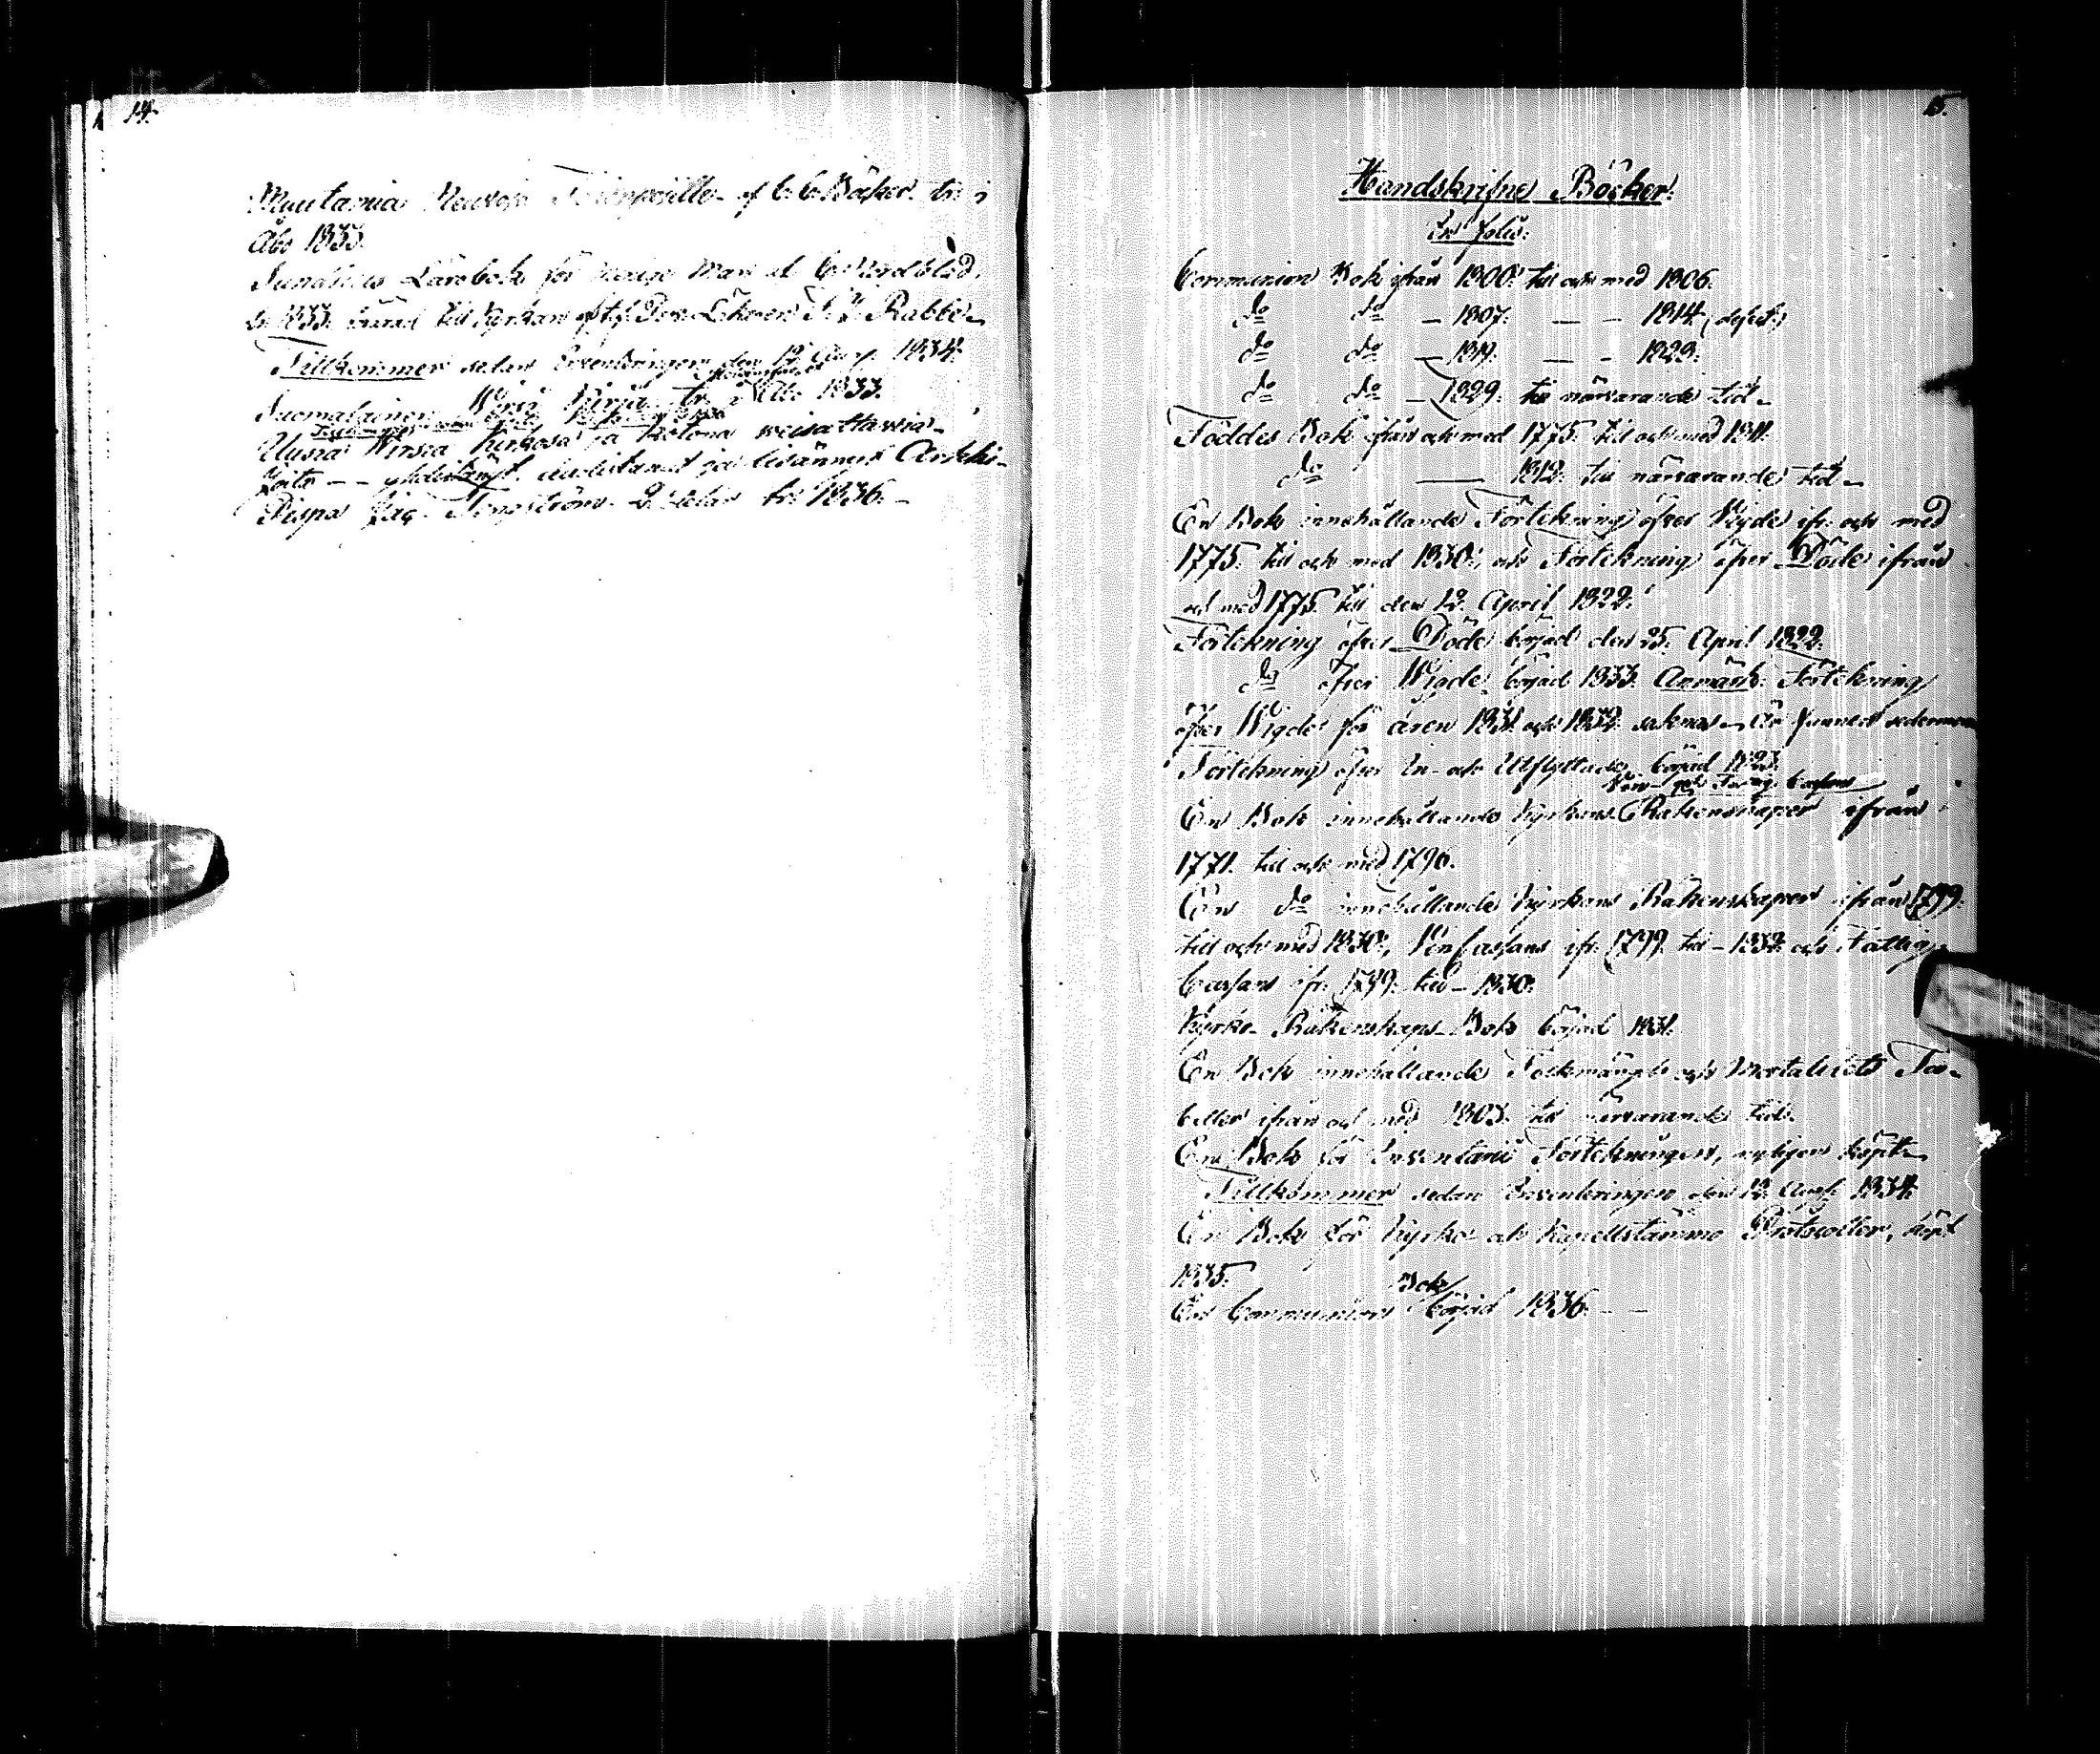 14.
Muutamia Neuvoja af C. C. Böcker tr. i
Åbo 1833.
Lärobok för af C. Nordblad
tr. 1833. till Kyrkan af Rabbe
Tillkommer sedan Inventeringen den 12 Aug. 1834.
Suomalainen Wirsi Kirja tr. i Åbo 1833.
Uusia Wirsiä Kirkosa ja kotona weisattawia
koito -- ja Arkki-
Pispa Jac. Tengström 2 delar tr. 1836.
15.
Handskrifne Böcker.
In folio:
Communion Bok ifrån 1800 till och med 1806.
do do — 1807. — - 1814. (defect)
do do — 1819. — - 1829.
do do — 1829. till närvarande tid.
Föddes Bok ifrån och med 1775. till och med 1811.
do — 1812. till närvarande tid.
En Bok innehållande Förtekning öfver Vigde ifr. och med
1775. till och med 1830., och Förtekning öfver Döde ifrån
och med 1775 till den 12. April 1822.
Förtekning öfver Döde börjad den 25. April 1822.
do öfver Wigde börjad 1833. Anmärk: Förtekning
öfver Wigde för åren 1831. och 1832. saknas. Är funnen
Förtekning öfver In- och Utflyttade, börjad 1823.
Vin- och Fattig Cassans
En Bok innehållande Kyrkans Räkenskaper ifrån
1771. till och med 1796.
En do innehållande Kyrkans Räkenskaper ifrån 1799.
till och med 1830., Vin Cassans ifr. 1799. till - 1832. och Fattig
Cassans ifr. 1799. till - 1830.
Kyrko Räkenskaps Bok börjad 1831.
En Bok innehållande Folkmängds och Mortalitets Ta-
beller ifrån och med 1805. till närvarande tid.
En Bok för Inventarii Förtekningen, nyligen köpt.
Tillkommer sedan Inventeringen den 12. Aug. 1834.
En Bok för Kyrko- och Kapellstämmo Protocoller, köpt
1835.
Bok
En Communion börjad 1836. — —